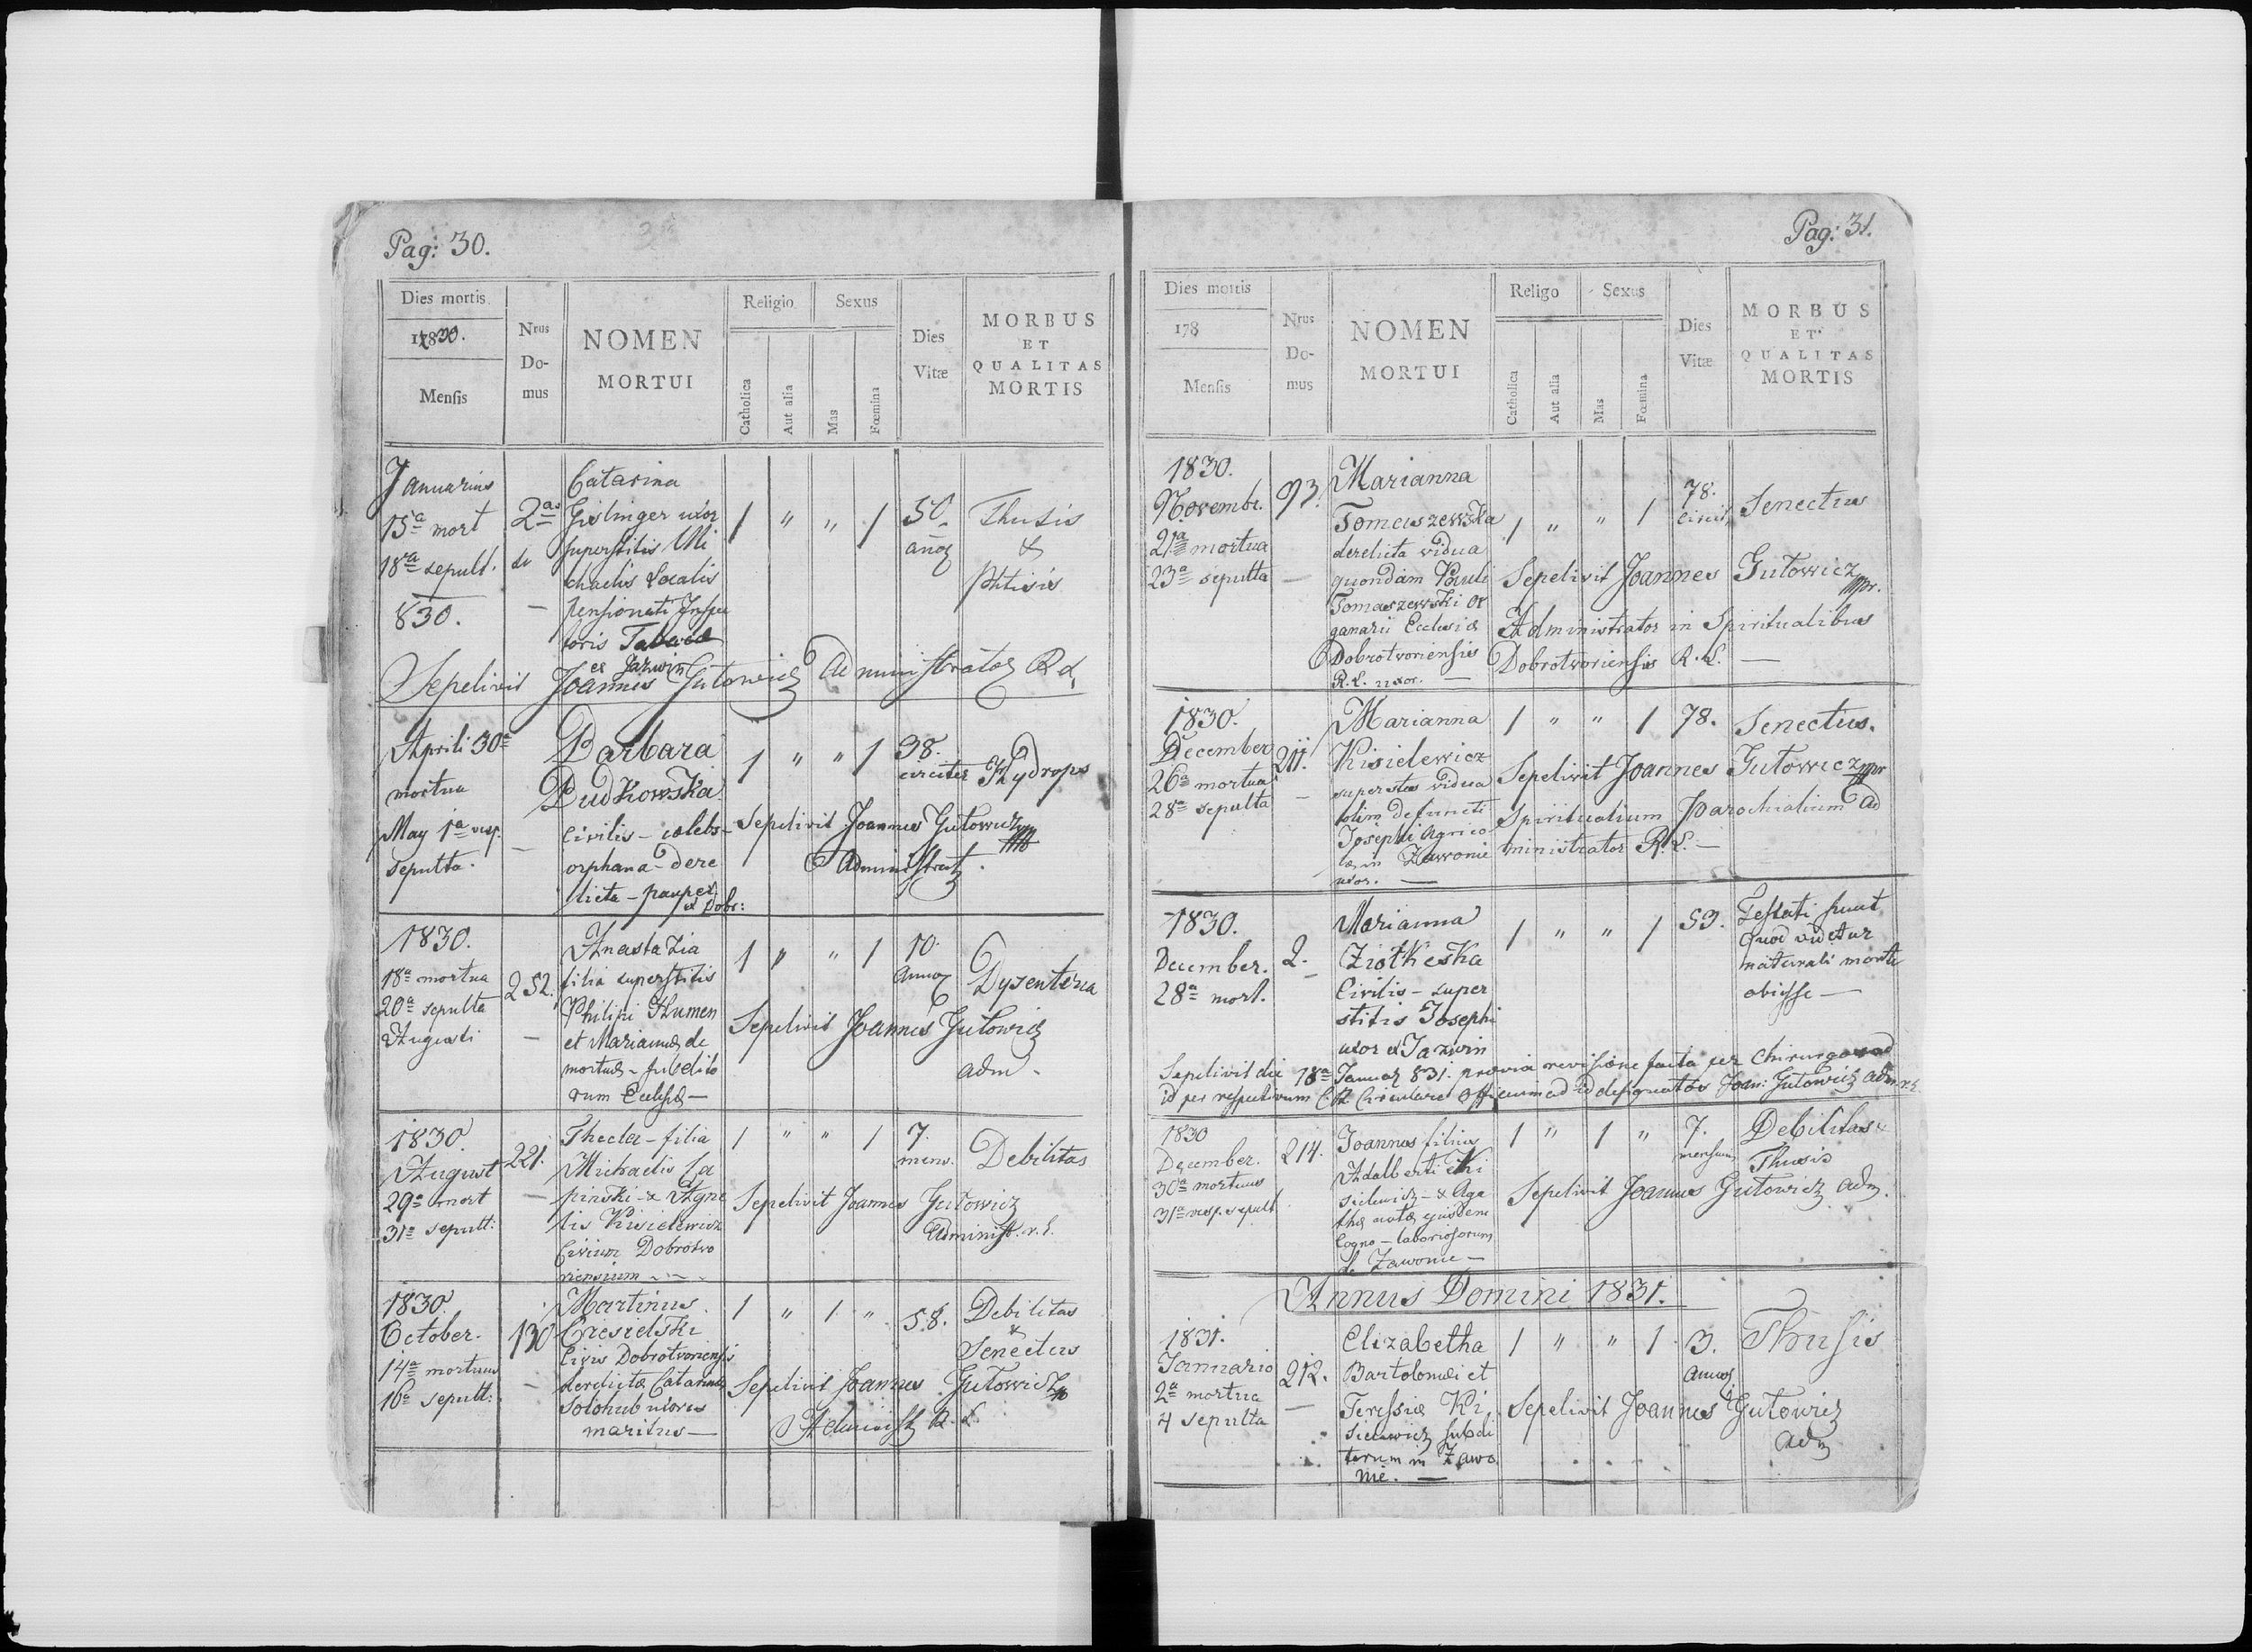 Pag: 30.
Dies mortis
1830.
Mensis
Nrus
Do-
mus
NOMEN
MORTUI
Religio
Catholica
Aut alia
Sexus
Mas
Fœmina
Dies
Vitæ
MORBUS
ET
QUALITAS
MORTIS
Januarius
15a mort
18a sepult.
830.
2a
de
Catarina
Gislinger uxor
superstitis Mi
chaelis Localis
pensionati Inspec
toris Tabacæ
ex Jazwin
1 " " 1
50
Thusis
&
Phtisis
Sepelivit Joannes Gutowicz Administrator R. L.
Aprili 30a
mortua
May 1a vesp.
sepulta.
Barbara
Dudkowska
Civilis - celebs -
orphana - dere
licta - pauper
ex Dobr:
1 " " 1
38.
circiter
Hydrops
Sepelivit Joannes Gutowicz
Administrat.
1830.
18a mortua
20a sepulta
Augusti
252.
Anastazia
filia superstitis
Philipi Humen
et Mariannæ de
mortuæ - subdito
rum Ecclesiæ -
1 " " 1
10.
Dysenteria
Sepelivit Joannes Gutowicz
adm -
1830
August
29a mort
31a sepult:
221.
Thecla - filia
Michaelis La
pinski - & Agne
tis Kisielewicz
Civium Dobrotwo
riensium -
1 " " 1
7.
mens.
Debilitas
Sepelivit Joannes Gutowicz
Administ. r. l.
1830.
October.
14a mortuus
16a sepult:
130
Martinus
Ciesielski
Civis Dobrotworiensis
derelictæ Catarinæ
Solohub uxoris
maritus -
1 " 1 "
58.
Debilitas
&
Senectus
Sepelivit Joannes Gutowicz
Administ R. L.
Pag: 31.
Dies mortis
178
Mensis
Nrus
Do-
mus
NOMEN
MORTUI
Religo
Catholica
Aut alia
Sexus
Mas
Fœmina
Dies
Vitæ
MORBUS
ET
QUALITAS
MORTIS
1830.
Novembr.
21a mortua
23a sepulta
93.
Marianna
Tomaszewska
derelicta vidua
quondam Pauli
Tomaszewski Or
ganarii Ecclesiæ
Dobrotworiensis
R. L. uxor. -
1 " " 1
78.
circit.
Senectus
Sepelivit Joannes Gutowicz mpr.
Administrator in Spiritualibus
Dobrotworiensis R. L. -
1830.
December
26a mortua
28a sepulta
211.
Marianna
Kisielewicz
superstes vidua
olim defuncti
Josephi Agrico
læ in Zawonie
uxor. -
1 " " 1
78.
Senectus.
Sepelivit Joannes Gutowicz mpr
Spiritualium Parochialium Ad
ministrator R. L. -
1830.
December.
28a mort.
2.
Marianna
Ziołkeska
Civilis - super
stitis Josephi
uxor ex Jazwin
1 " " 1
53.
Testati sunt
quod videtur
naturali morte
obiisse -
Sepelivit die 18a Januar 831. prævia revisione facta per Chirurgum ad
id per respectivum Circulare Officium ad id designatos Joan: Gutowicz adm. r. l.
1830
December.
30a mortuus
31a vesp. sepult
214.
Joannes filius
Adalberti Ki
sielewicz - & Aga
thæ natæ ejusdem
Cogno - laboriosorum
de Zawonie -
1 " 1 "
7.
mensium
Debilitas &
Thusis
Sepelivit Joannes Gutowicz adm.
Annus Domini 1831.
1831.
Januario
2a mortua
4 sepulta
212.
Elizabetha
Bartolomæi et
Teressiæ Ki
sielewicz subdi
torum in Zawo
nie. -
1 " " 1
3.
Thusis
Sepelivit Joannes Gutowicz
adm